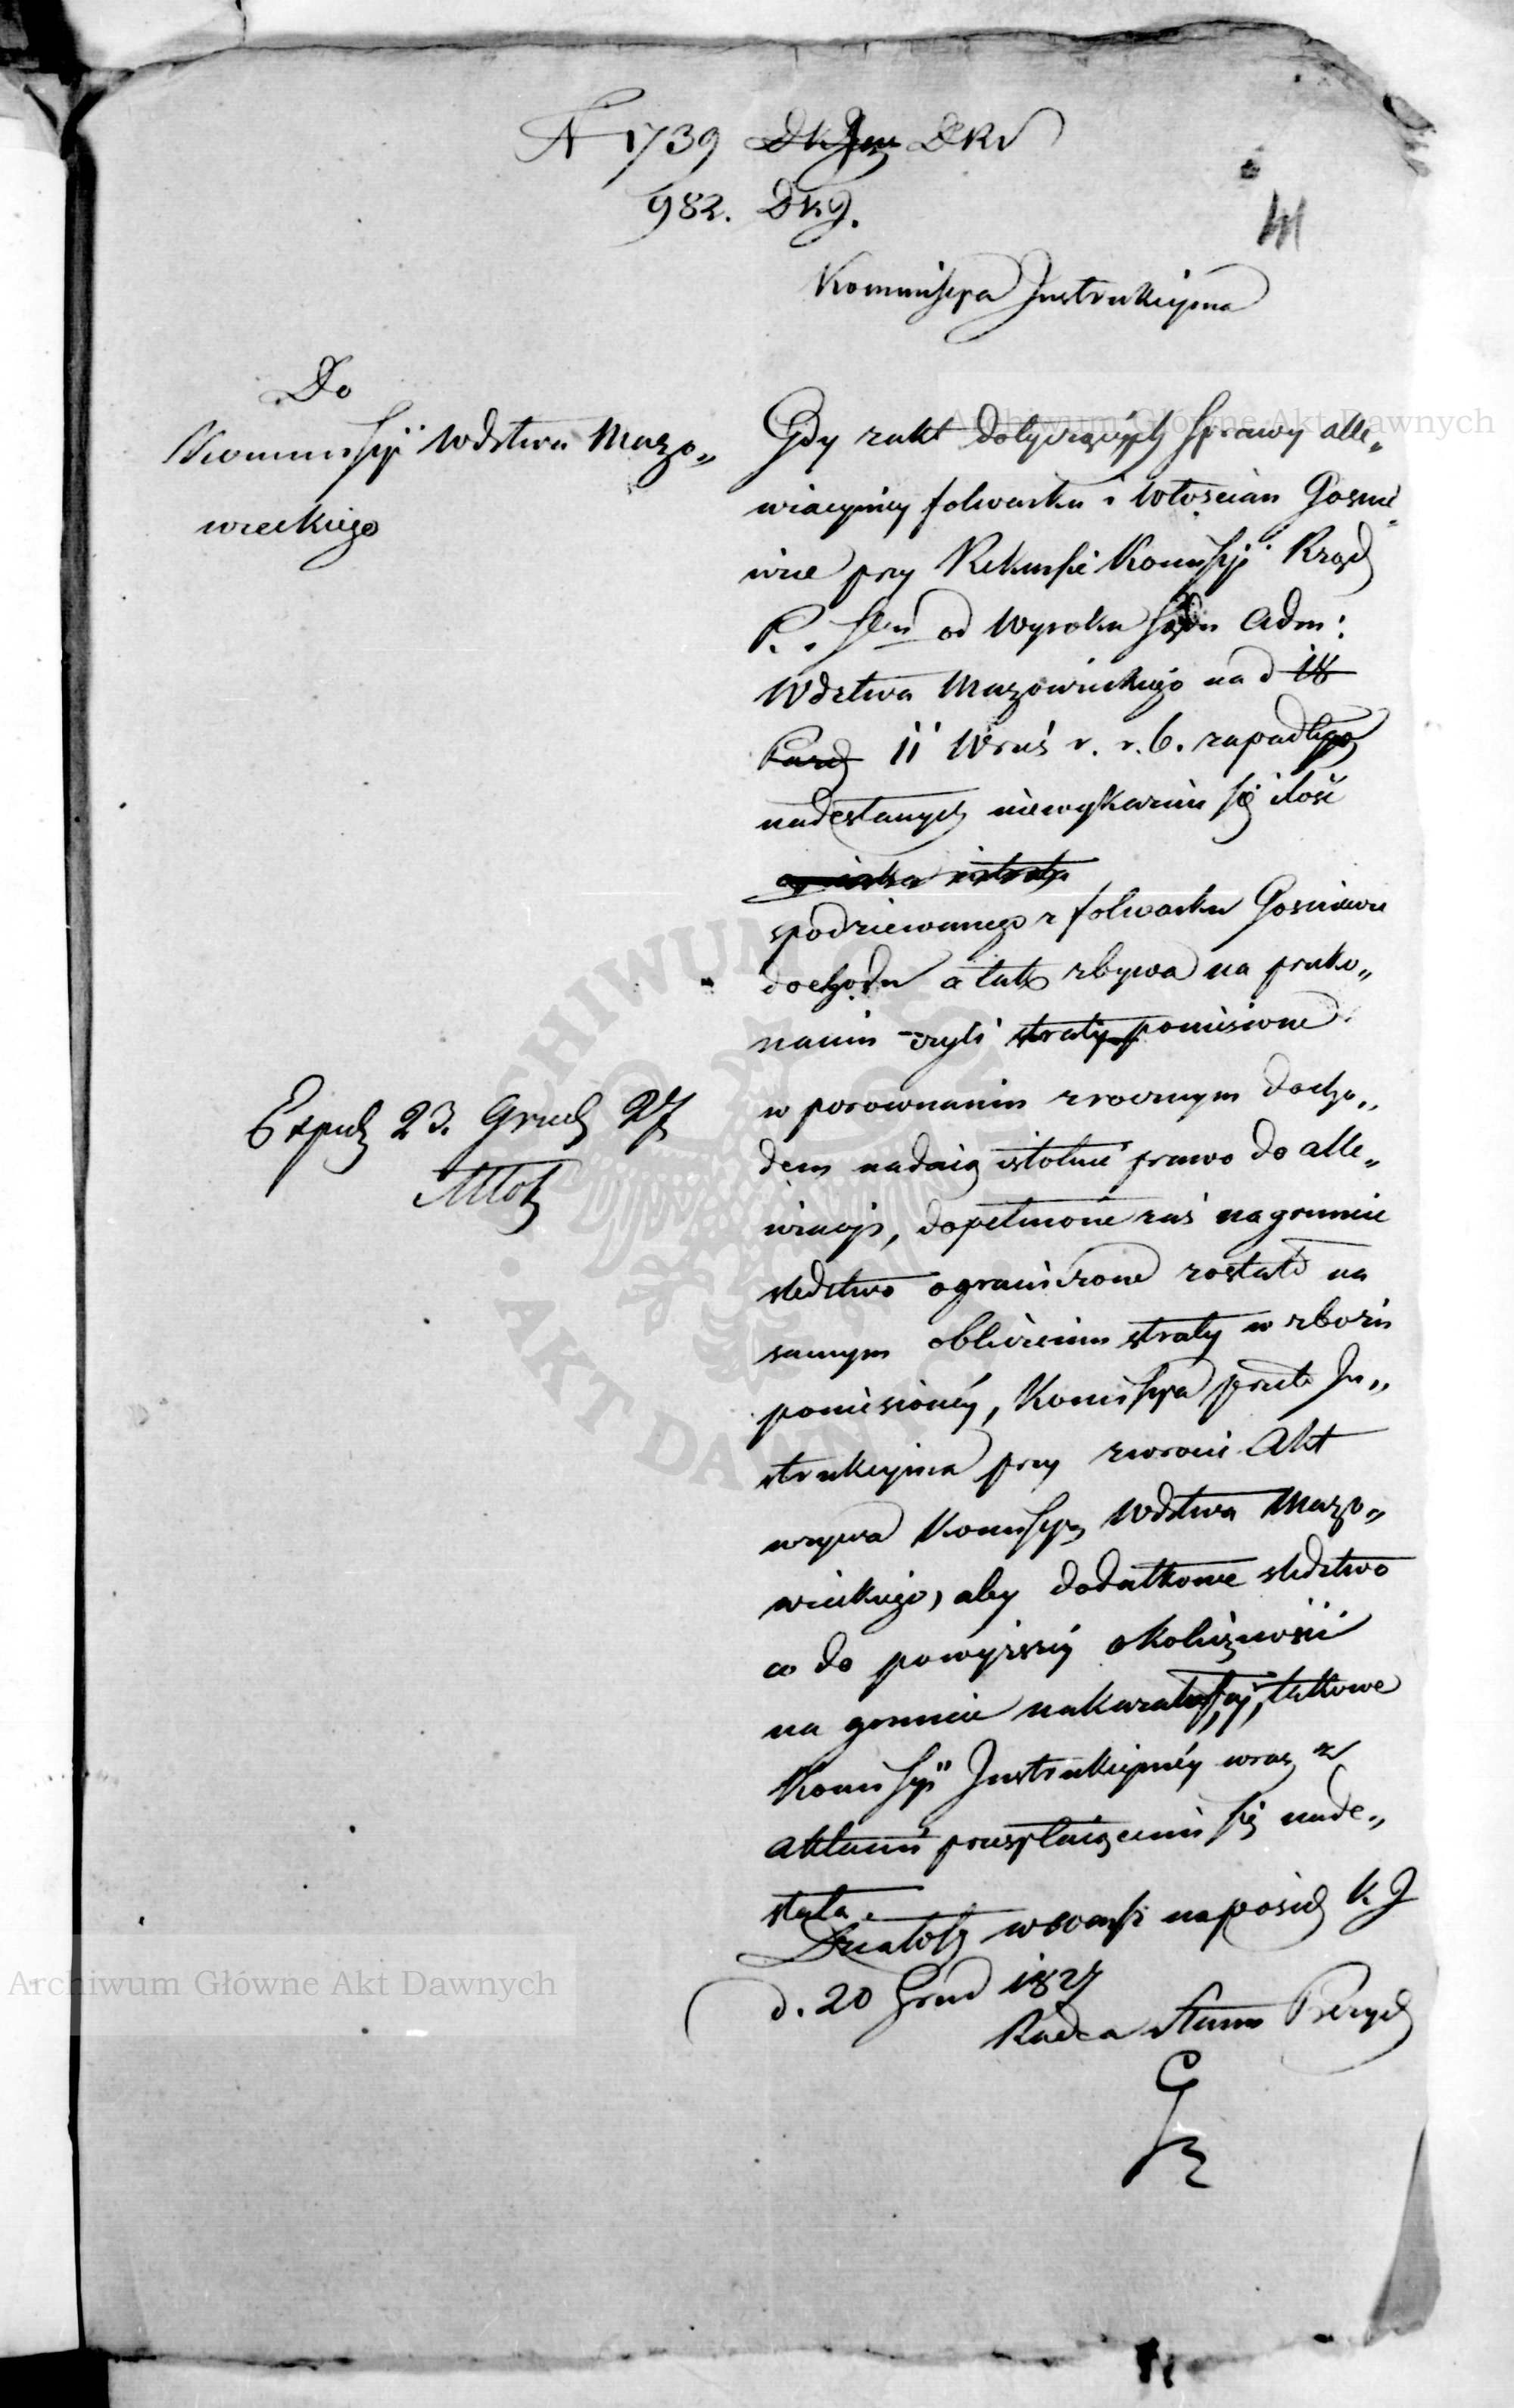 N 1739 DKJew DKJ
982. DKJ.
Kommissya Instrukcyjna
Do
Kommissyi Wdztwa Mazo„
wieckiego
Gdy z akt dotyczących sprawy alle„
wiacyjney folwarku i Włoscian Gosnie„
wice przy Rekursie Komissyi Rząd
P. i Sku od Wyroku Sądu Adm:
Wdztwa Mazowieckiego na d 18
Pazd 11 Wrześ r. b. zapadłego
nadesłanych niewykazuie się ilość
spodziewanego z folwarku Gosniewice
dochodu a tak zbywa na przeko„
naniu czyli straty poniesione
w porownaniu z rocznym docho„
dem nadaią istotnie prawo do alle„
wiacyi, dopełnione zaś na gruncie
sledztwo ograniczone zostało na
samym obliczeniu straty w zbożu
poniesioney, Komissya przeto In„
strukcyjna przy zwrocie Akt
wzywa Komissyą Wdztwa Mazo„
wieckiego, aby dodatkowe sledztwo
co do powyższey okoliczności
na gruncie nakazała, takowe
Komissyi Instrukcyjney wraz z
aktami przesyłaiącemi się nade„
słała.
Działo się w Warsz na posied K J
d. 20 Grud 1827
Radca Stanu
Exped 23. Grud 27
Archiwum Główne Akt Dawnych
Archiwum Główne Akt Dawnych